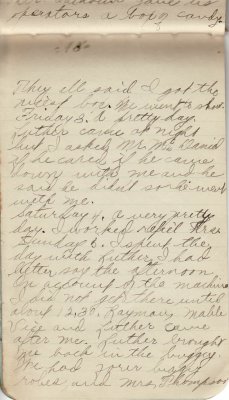 operators a box candy.
-18-
They all said I got the
nicest box. We went to show.
Friday 3. A pretty day.
Luther came at night
but I asked Mr. Mc Daniel
if he cared if he came
down with me and he
said he didn't so he went
with me.
Saturday 4. A very pretty
day. I worked until three
Sunday 5. I spent the
day with Luther, I had
better say the afternoon
on account of the machine
I did not get there until
about 12,30. Raymon, Mable
and Luther came
after me. Luther brought
me back in the buggy.
We had our buggy
robes and Mrs. Thompson